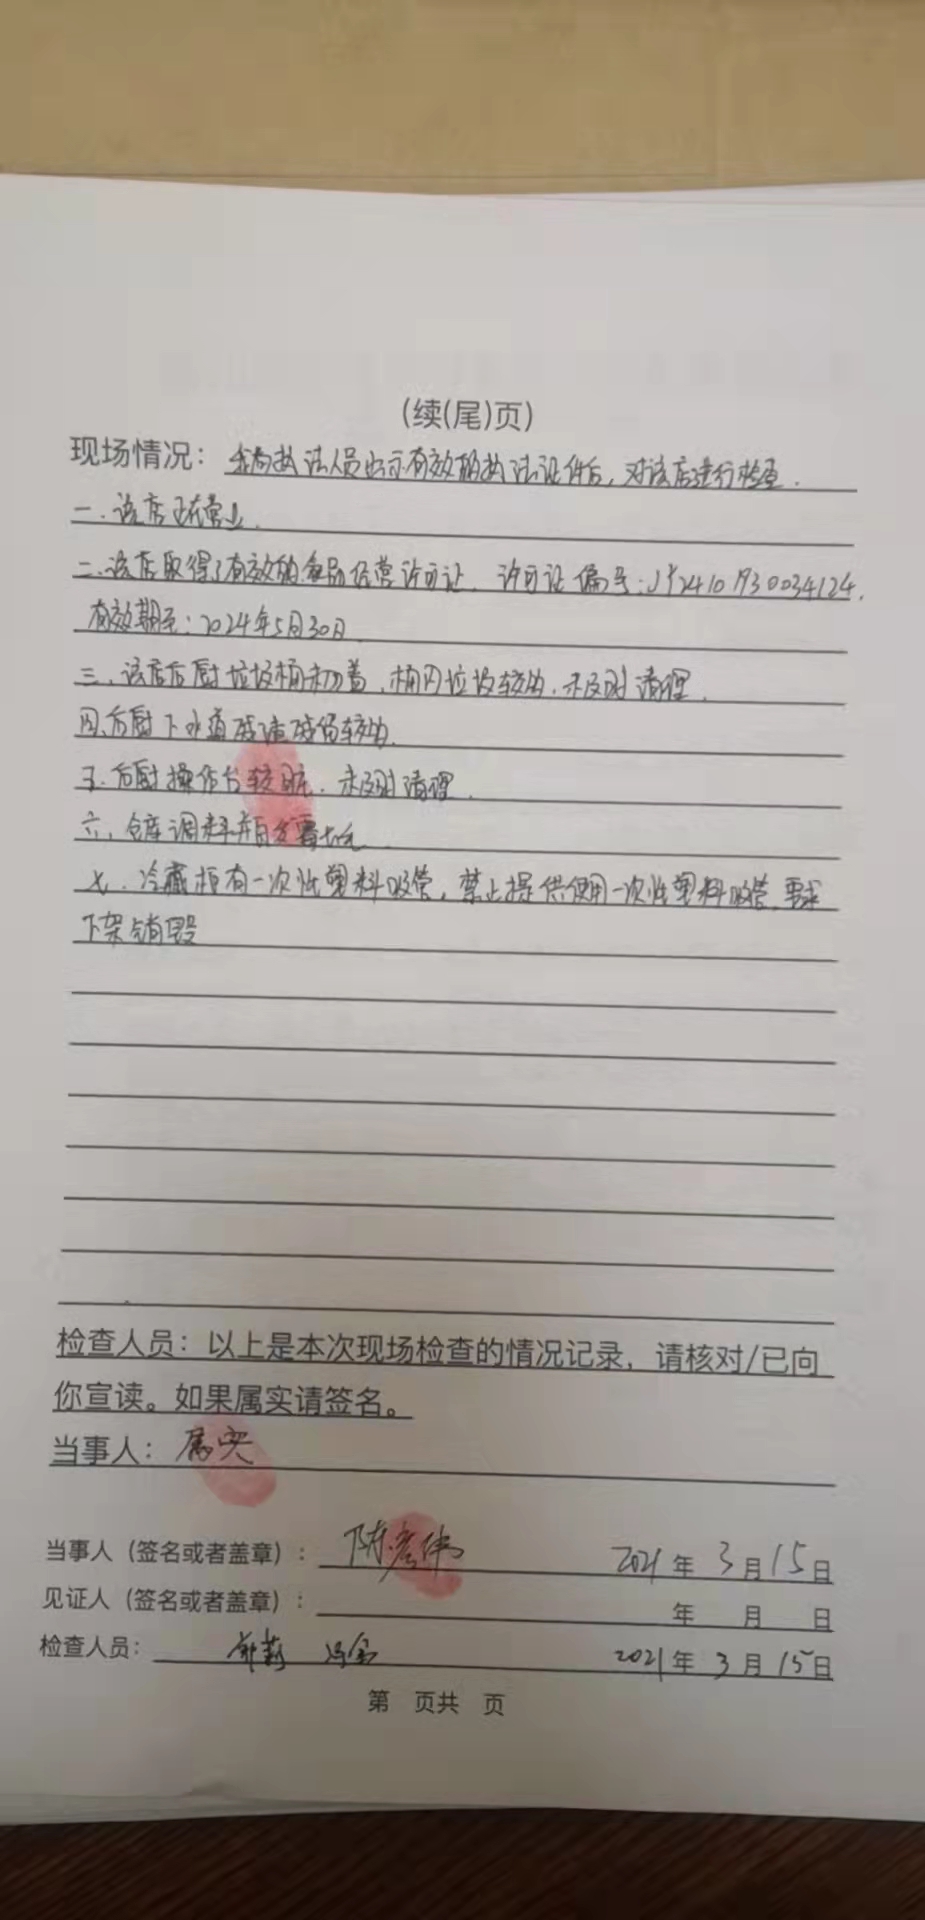 (续(尾)页)
现场情况：我局执法人员出示有效的执法证件后，对该店进行检查.
一.该店正在营业.
二.该店取得了有效的食品经营许可证，许可证编号：JY24101930034124.
有效期至：2024年5月30日.
三、该店后厨垃圾桶未加盖，桶内垃圾较多.未及时清理.
四、后厨下水道残渣残留较多.
五、后厨操作台较脏.未及时清理.
六、仓库调料
七、冷藏柜有一次性塑料吸管，禁止提供使用一次性塑料吸管.要求
下架销毁
检查人员：以上是本次现场检查的情况记录，请核对/已向
你宣读。如果属实请签名。
当事人：属实
当事人（签名或者盖章）：陈彦伟 2021年3月15日
见证人（签名或者盖章）： 年 月 日
检查人员： 2021年3月15日
第 页共 页